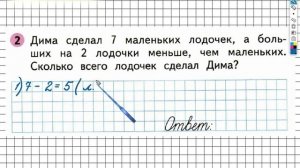 2 Дима сделал 7 маленьких лодочек, а боль-
ших на 2 лодочки меньше, чем маленьких.
Сколько всего лодочек сделал Дима?
1) 7 - 2 = 5 (л
Ответ: